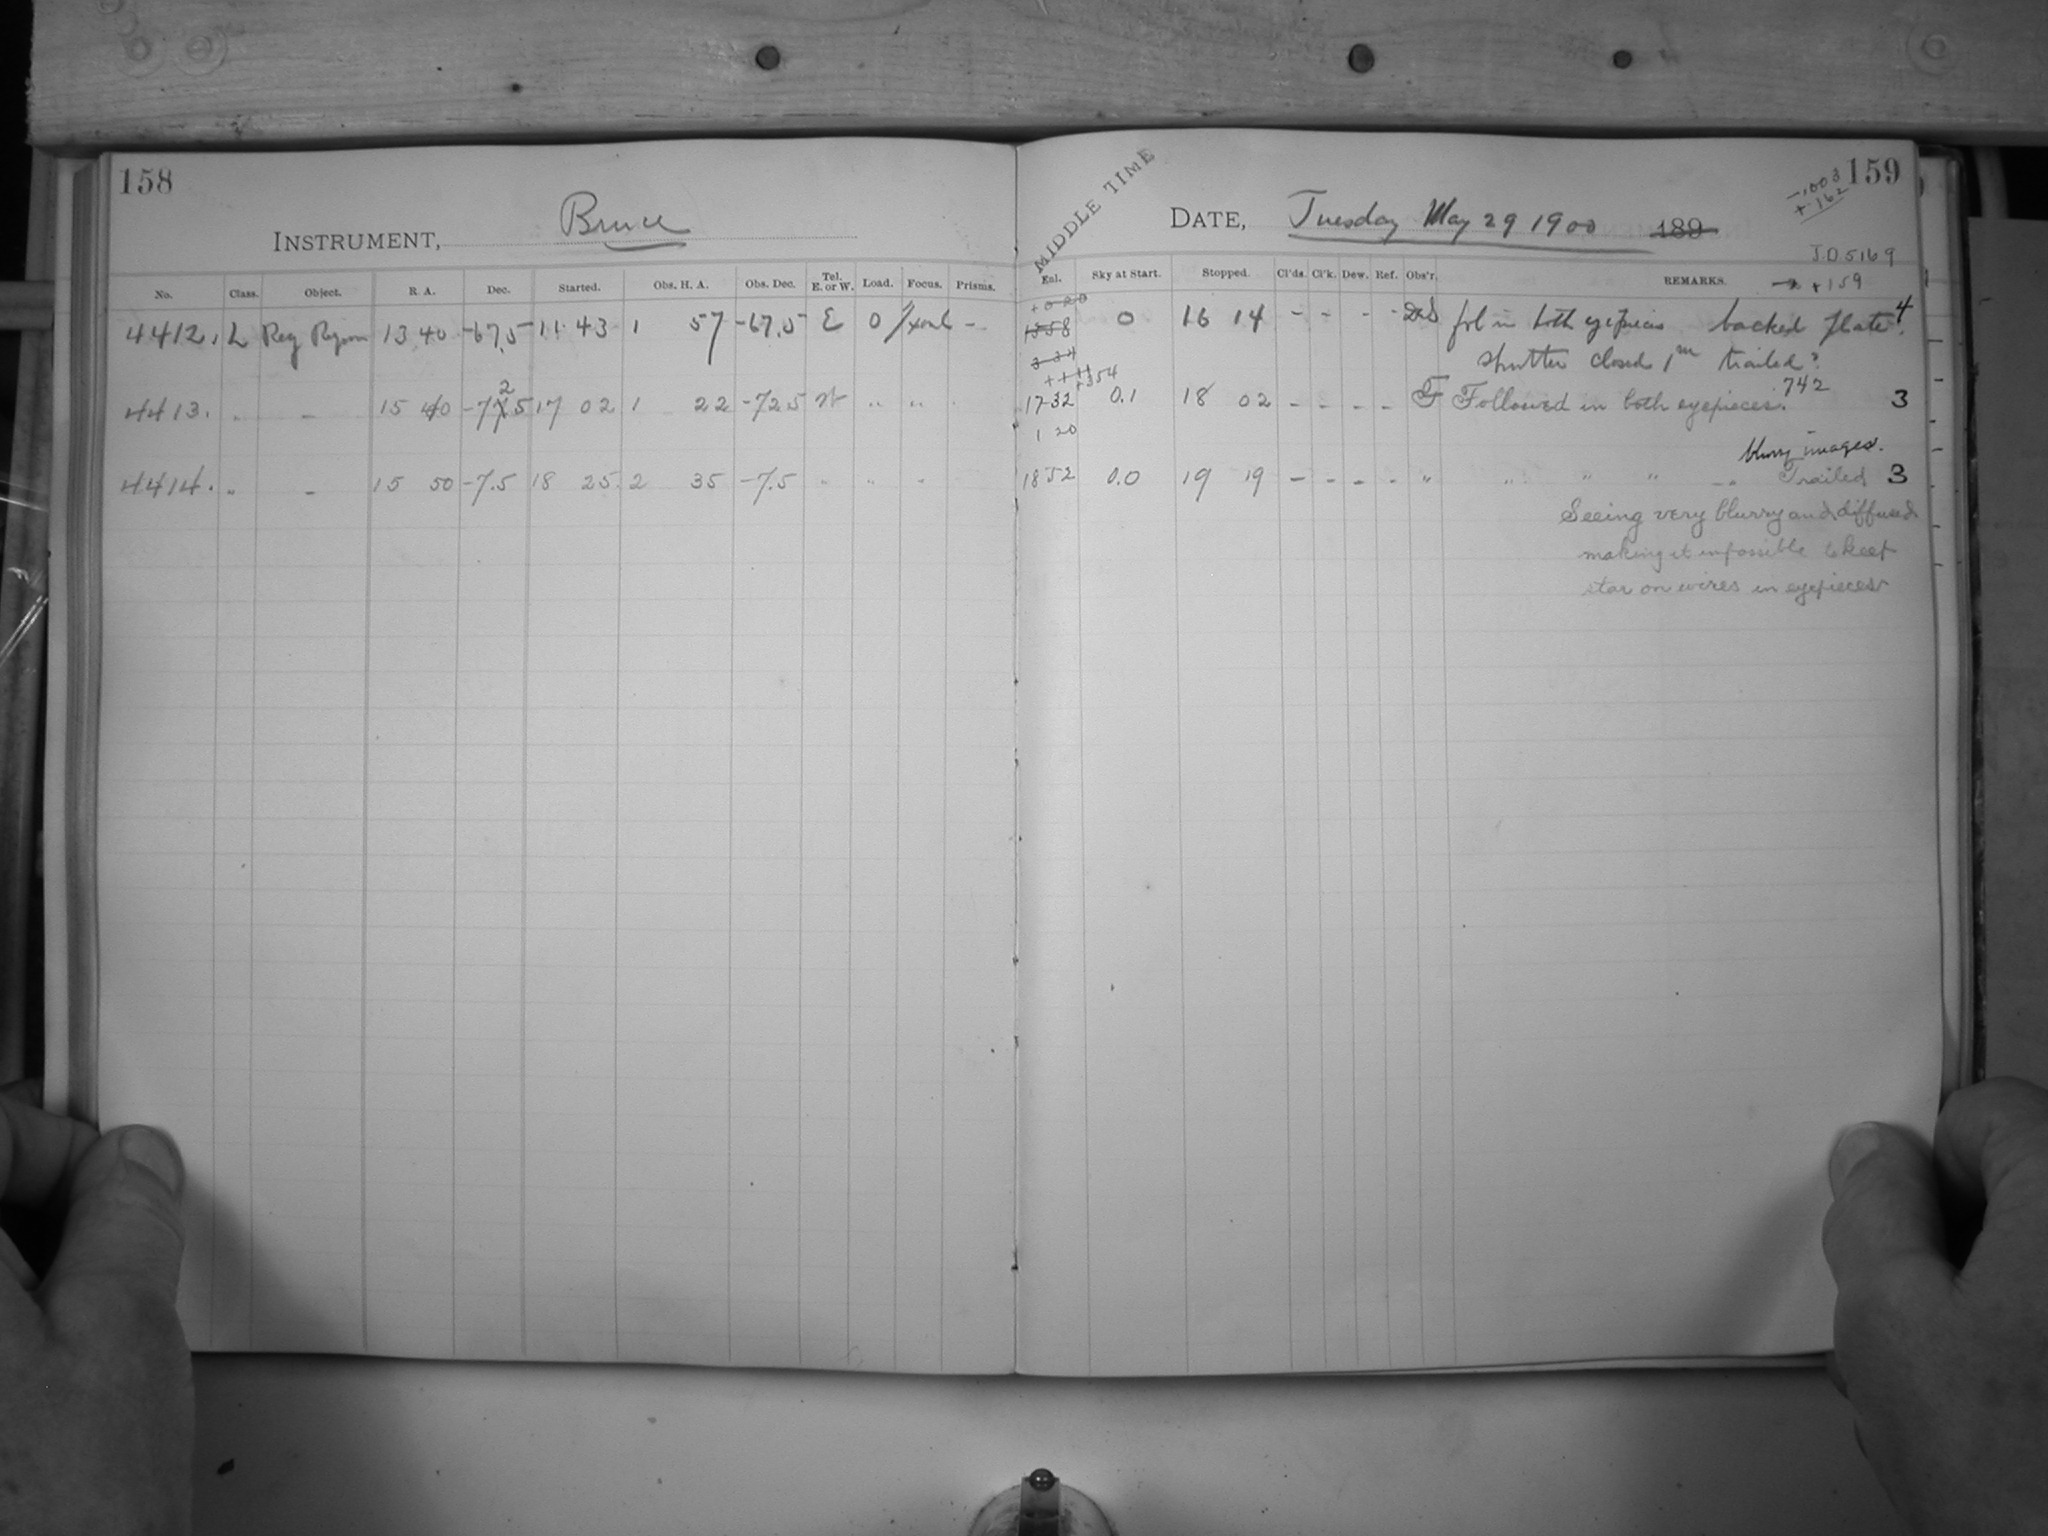 158
INSTRUMENT, Bruce
No. Class. Object. R. A. Dec. Started. Obs. H. A. Obs. Dec. Tel. E. or W. Load. Focus. Prisms.
4412. L Reg 13 40 -67.5 11 43 1 57 -67.5 E 0 -
4413. " - 15 40 -72.5 17 02 1 22 -72.5 W " " "
4414. " - 15 50 -7.5 18 25 2 35 -7.5 " " "
MIDDLE TIME
159
-1003
+.162
DATE, Tuesday May 29 1900 189
J.D 5169
+159
Enl. Sky at Start. Stopped. Cl'ds. Cl'k. Dew. Ref. Obs'r. REMARKS.
+0 20
1358 0 16 14 - - - - fol in both eyepieces backed plate 4
3 34 shutter closed 1m trailed?
+354
17 32 0.1 18 02 - - - - F Followed in both eyepieces. 742 3
1 20
blurry images.
18 52 0.0 19 19 - - - - " " " " Trailed 3
Seeing very blurry and diffused
making it impossible to keep
star on wires in eyepieces